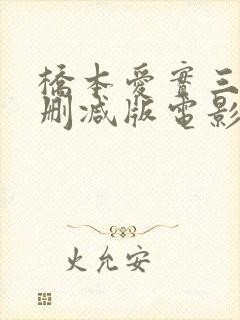 橋本愛實三
刪減版電影
火允安